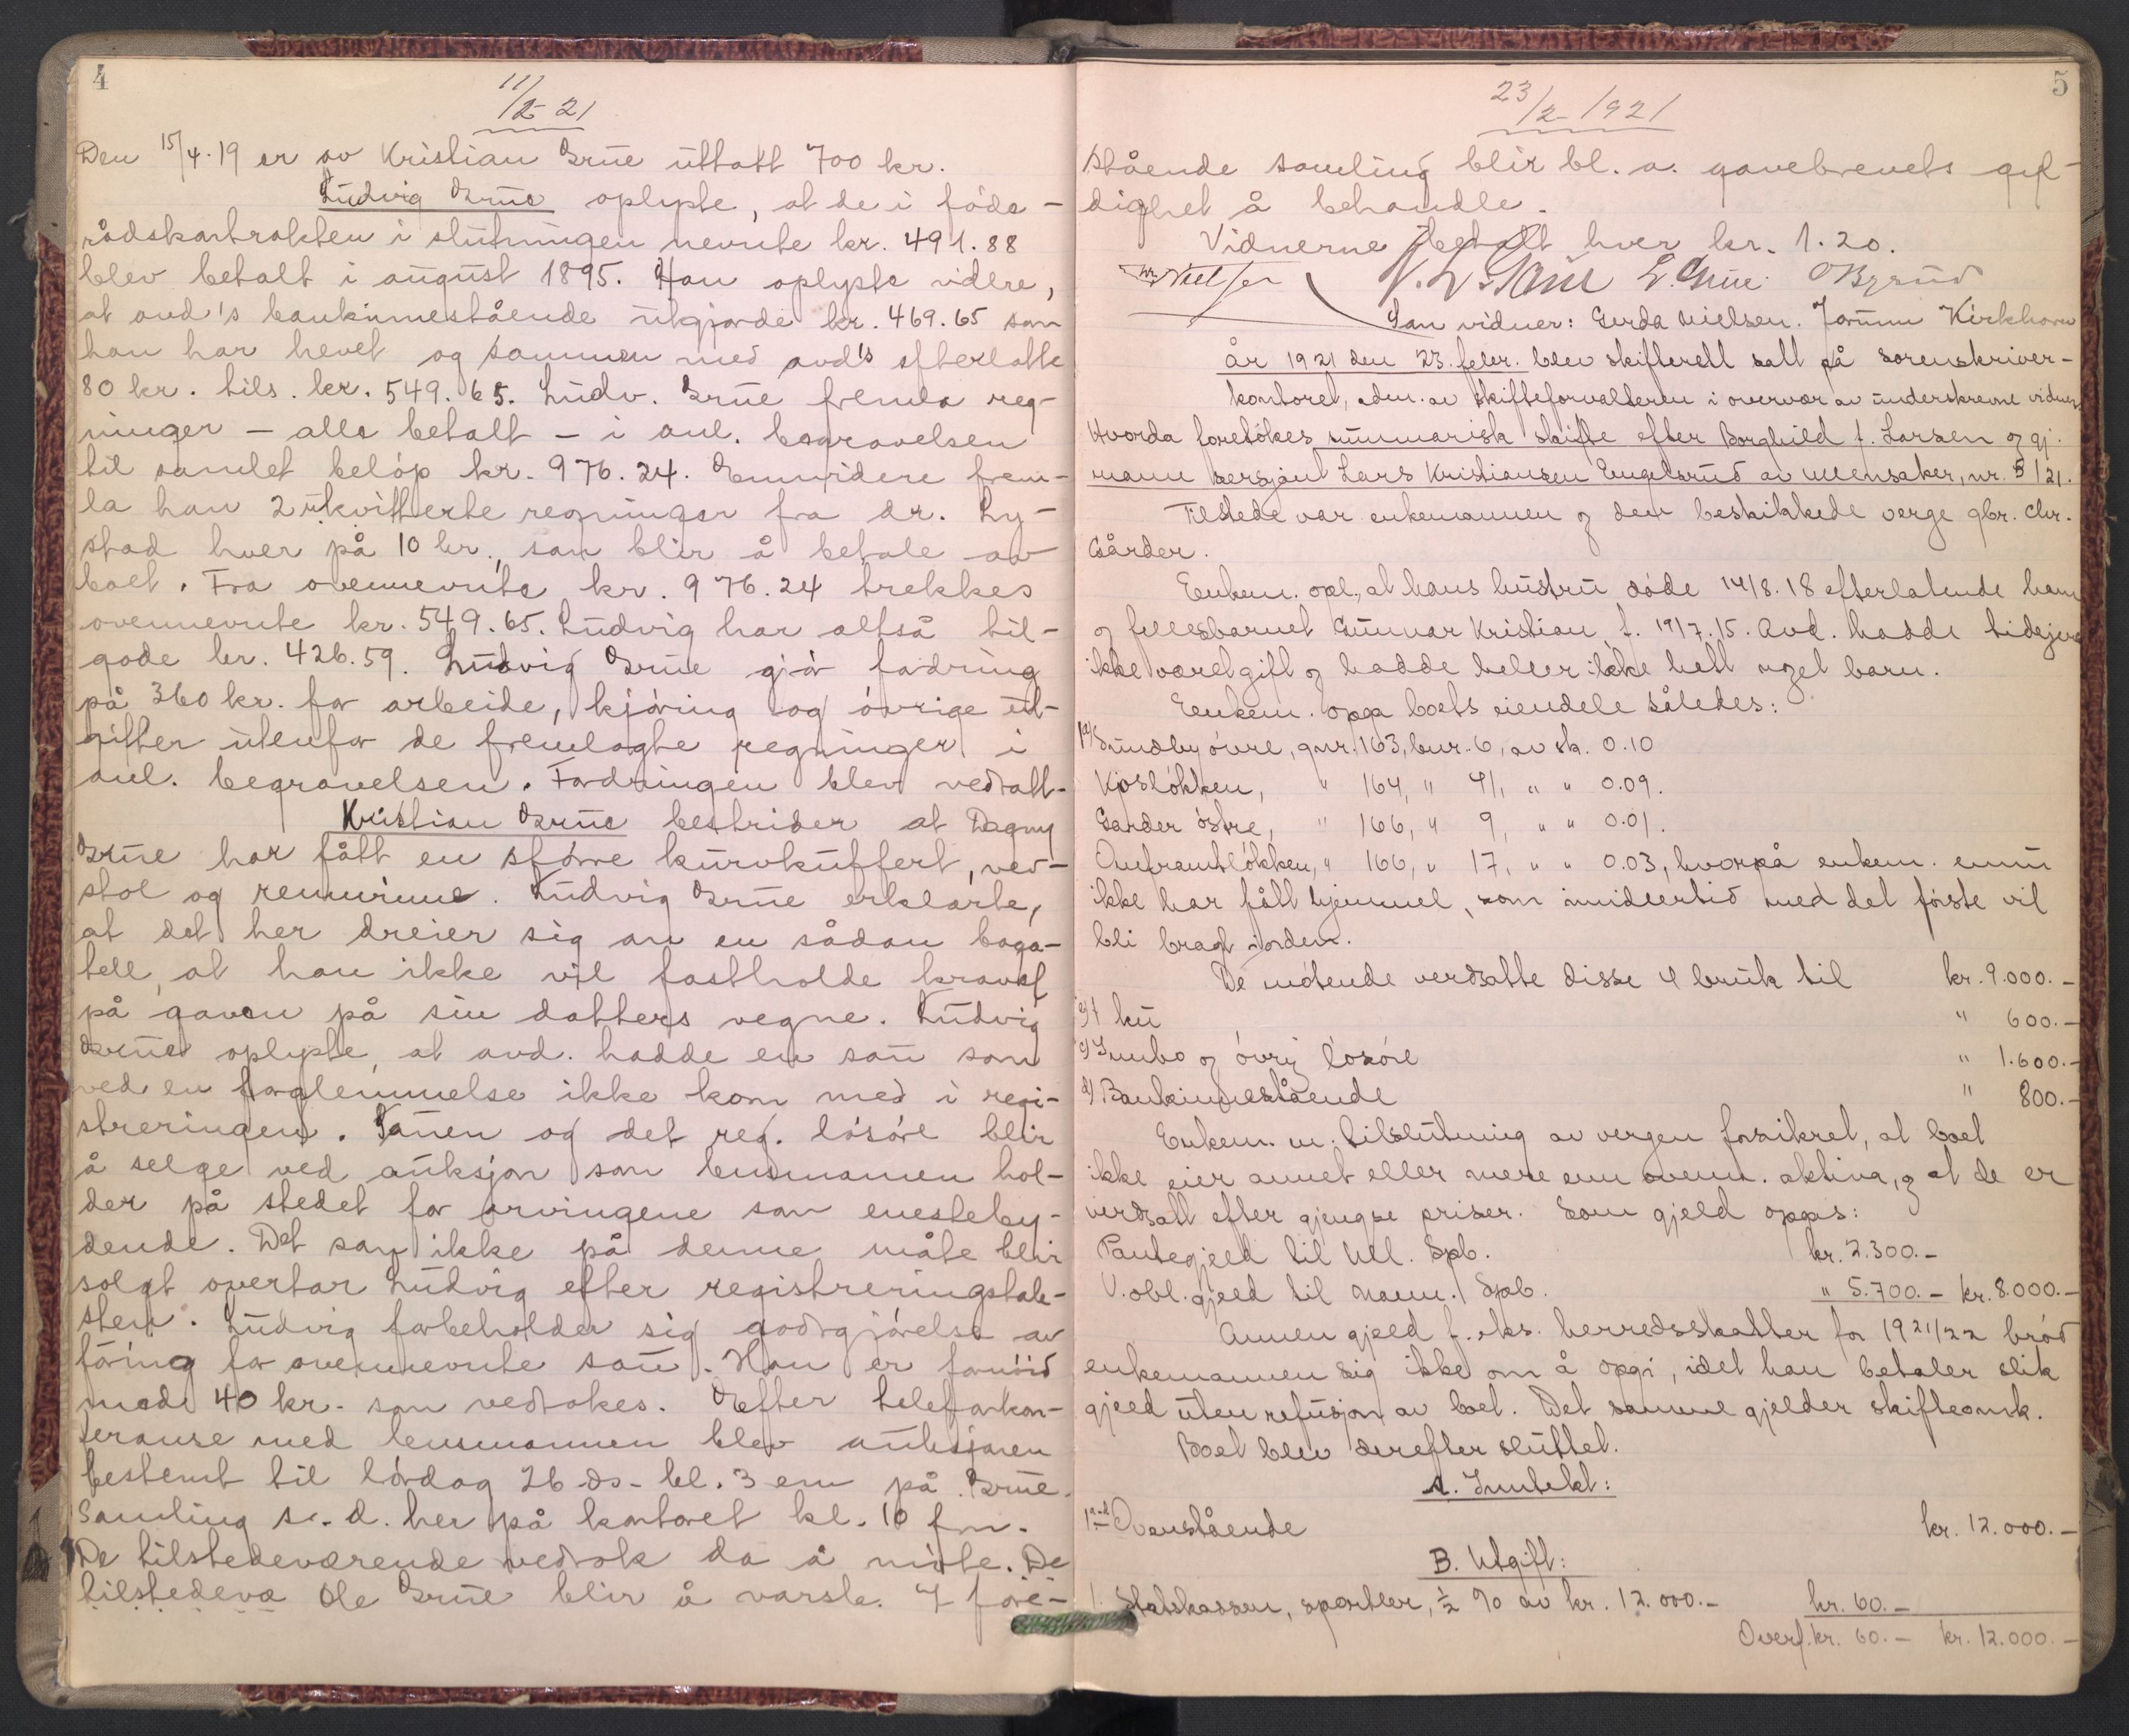 4
11/2 21
Den 15/4.19 er av Kristian Grue uttatt 700 kr.
Ludvig Grue oplyste, at de i föde-
rådskontrakten i slutningen nevnte kr. 491.88
blev betalt i august 1895. Han oplyste videre,
at avd's bankinnestående utgjorde kr. 469.65 som
han har hevet og sammen med avd's efterlatte
80 kr. tils. kr. 549.65. Ludv. Grue fremla reg-
ninger – alle betalt – i anl. begravelsen
til samlet belöp kr. 976.24. Ennvidere frem-
la han 2 ukvitterte regninger fra dr. Ly-
stad hver på 10 kr., som blir å betale av
boet. Fra ovennevnte kr. 976.24 trekkes
ovennevnte kr. 549.65. Ludvig har altså til-
gode kr. 426.59. Ludvig Grue gjör fordring
på 360 kr. for arbeide, kjöring og övrige ut-
gifter utenfor de fremlagte regninger i
anl. begravelsen. Fordringen blev vedtatt.
Kristian Grue bestrider at Dagny
Grue har fått en större kurvkuffert, vev-
stol og rennvinne. Ludvig Grue erklærte,
at det her dreier sig om en sådan baga-
tell, at han ikke vil fastholde kravet
på gaven på sin datters vegne. Ludvig
Grue oplyste, at avd. hadde en sau som
ved en forglemmelse ikke kom med i regi-
streringen. Sauen og det reg. lösöre blir
å selge ved auksjon som lensmannen hol-
der på stedet for arvingene som enesteby-
dende. Det som ikke på denne måte blir
solgt overtar Ludvig efter registreringstak-
sten. Ludvig forbeholder sig godtgjörelse av
föring for ovennevnte sau. Han er fornöid
med 40 kr. som vedtokes. Efter telefonkon-
feranse med lensmannen blev auksjonen
bestemt til lördag 26 ds. kl. 3 em på Grue.
Samling s. d. her på kontoret kl. 10 fm.
De tilstedeværende vedtok da å möte. De
tilstedevæ Ole Grue blir å varsle. I fore-
5
23/2 1921
stående samling blir bl. a. gavebrevets gyl-
dighet å behandle.
Vidnerne betalt hver kr. 1.20.
L. Grue O Byrud
Som vidner: Gerda Nielsen. Jorunn Kirkhorn
År 1921 den 23. febr. blev skifterett satt på sorenskriver-
kontoret, adm. av skifteforvalteren i overvær av underskrevne vidner.
Hvorda foretökes summarisk skifte efter Borghild f. Larsen og gj.
mann sersjant Lars Kristiansen Engelsrud av Ullensaker, nr. 5/21.
Tilstede var enkemannen og den beskikkede verge gbr. Chr.
Gårder.
Enkem. opl., at hans hustru döde 14/8.18 efterlatende ham
og fellesbarnet Gunnar Kristian, f. 19/7.15. Avd. hadde tidligere
ikke været gift og hadde heller ikke hatt noget barn.
Enkem. opga boets eiendele således:
a) Sundby övre, gnr. 163, bnr. 6, av sk. 0.10
Kjoslökken, " 164, " 41, " " 0.09.
Gander östre, " 166, " 9, " " 0.01.
" 166, " 17, " " 0.03, hvorpå enkem. ennu
ikke har fått hjemmel, som imidlertid med det förste vil
bli bragt iorden.
De mötende verdsatte disse 4 bruk til kr. 9.000.–
b) 1 ku " 600.–
c) Innbo og övrig lösöre " 1.600.–
d) Bankinnestående " 800.–
Enkem. m. tilslutning av vergen forsikret, at boet
ikke eier annet eller mere enn ovenn. aktiva, og at de er
verdsatt efter gjengse priser. Som gjeld opgis:
Pantegjeld til Ull. Spb. kr. 2.300.–
V. obl. gjeld til Nann. Spb. " 5.700.– kr. 8.000.–
Annen gjeld f. eks. herredsskatter for 1921/22 bröd
enkemannen sig ikke om å opgi, idet han betaler slik
gjeld uten refusjon av boet. Det samme gjelder skifteomk.
Boet blev derefter sluttet.
A. Inntekt:
1 a-d Ovenstående kr. 12.000.–
B. Utgift:
1. Statskassen, sportler, ½ % av kr. 12.000.– kr. 60.–
Overf. kr. 60.– kr. 12.000.–